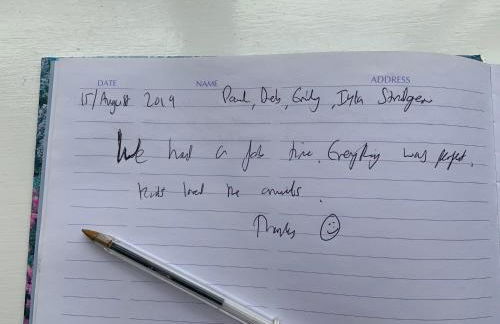 DATE NAME ADDRESS
15/August 2019 Paul, Deb,
We had a fab time. Everything was perfect.
Kids loved the animals.
Thanks ☺